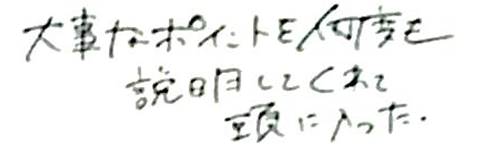 大事なポイントを何度も
説明してくれて
頭に入った.